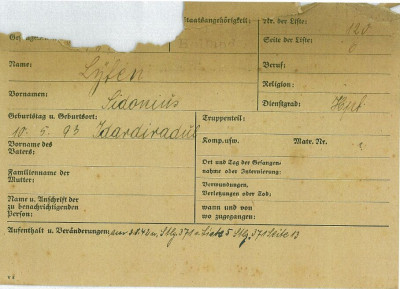 Staatsangehörigkeit:
Nr. der Liste: 120
Seite der Liste: 0
Name: Lysen
Beruf:
Vornamen: Sidonius
Religion:
Dienstgrad:
Geburtstag u. Geburtsort:
10. 5. 93
Truppenteil:
Vorname des
Vaters:
Komp. usw. Matr. Nr.
Ort und Tag der Gefangen-
nahme oder Internierung:
Familienname der
Mutter:
Verwundungen,
Verletzungen oder Tod:
Name u. Anschrift der
zu benachrichtigenden
Person:
wann und von
wo zugegangen:
Aufenthalt u. Veränderungen: Stlg 371 Liste 5 Stlg. 371 Seite 13